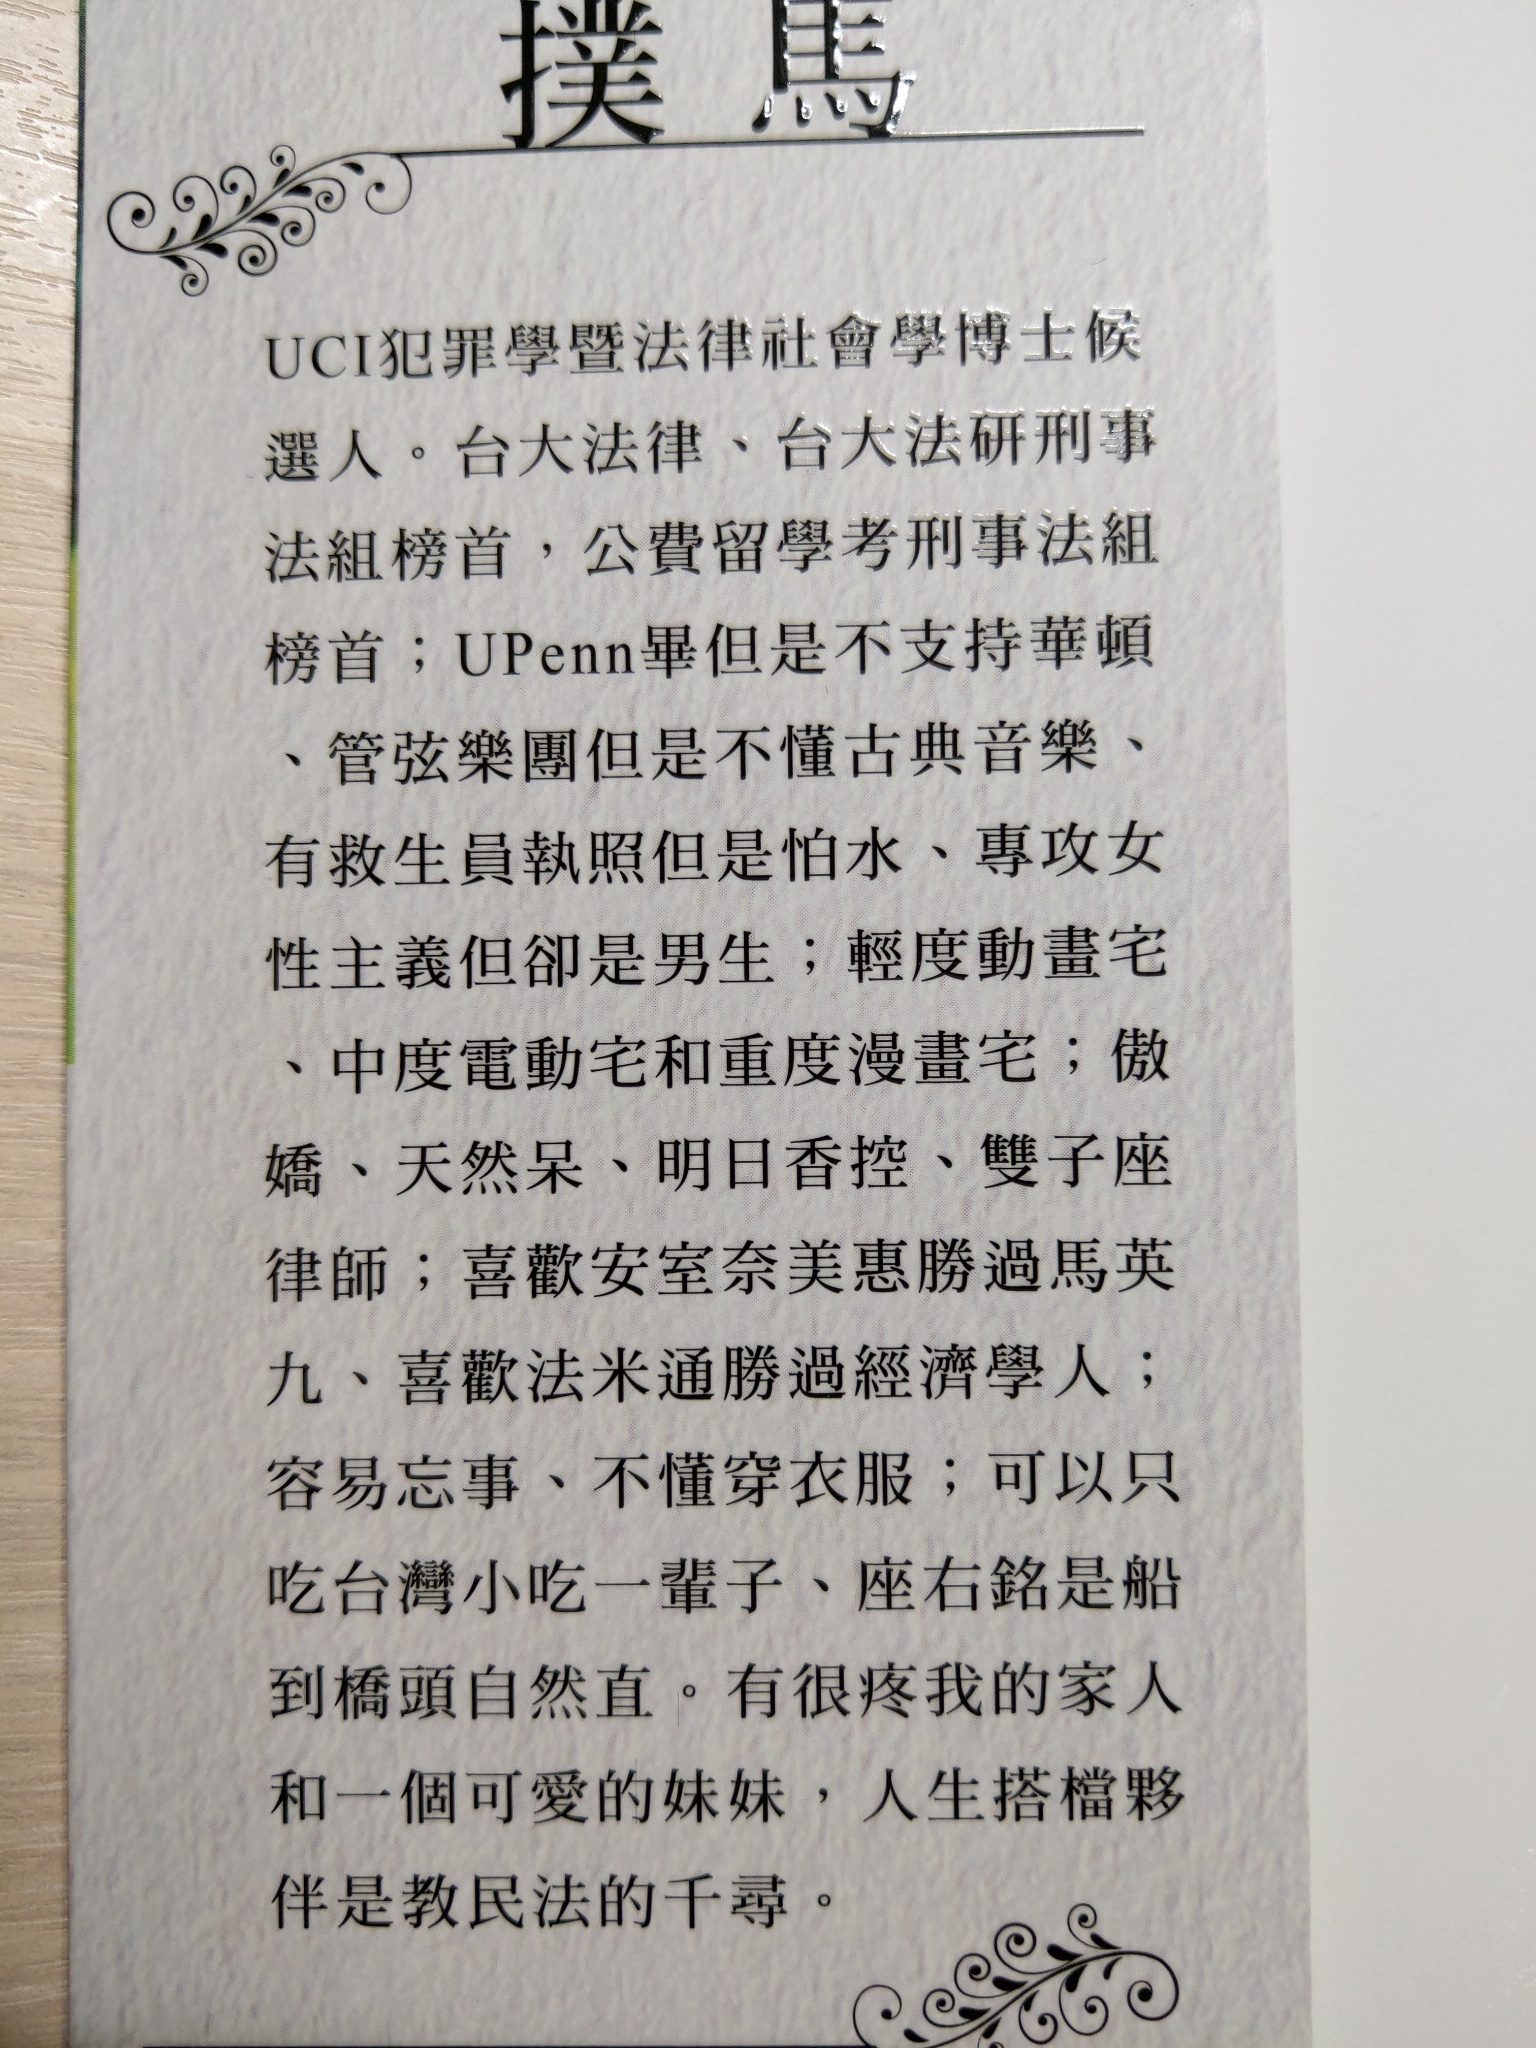 撲馬
UCI犯罪學暨法律社會學博士候
選人。台大法律、台大法研刑事
法組榜首，公費留學考刑事法組
榜首；UPenn畢但是不支持華頓
、管弦樂團但是不懂古典音樂、
有救生員執照但是怕水、專攻女
性主義但卻是男生；輕度動畫宅
、中度電動宅和重度漫畫宅；傲
嬌、天然呆、明日香控、雙子座
律師；喜歡安室奈美惠勝過馬英
九、喜歡法米通勝過經濟學人；
容易忘事、不懂穿衣服；可以只
吃台灣小吃一輩子、座右銘是船
到橋頭自然直。有很疼我的家人
和一個可愛的妹妹，人生搭檔夥
伴是教民法的千尋。